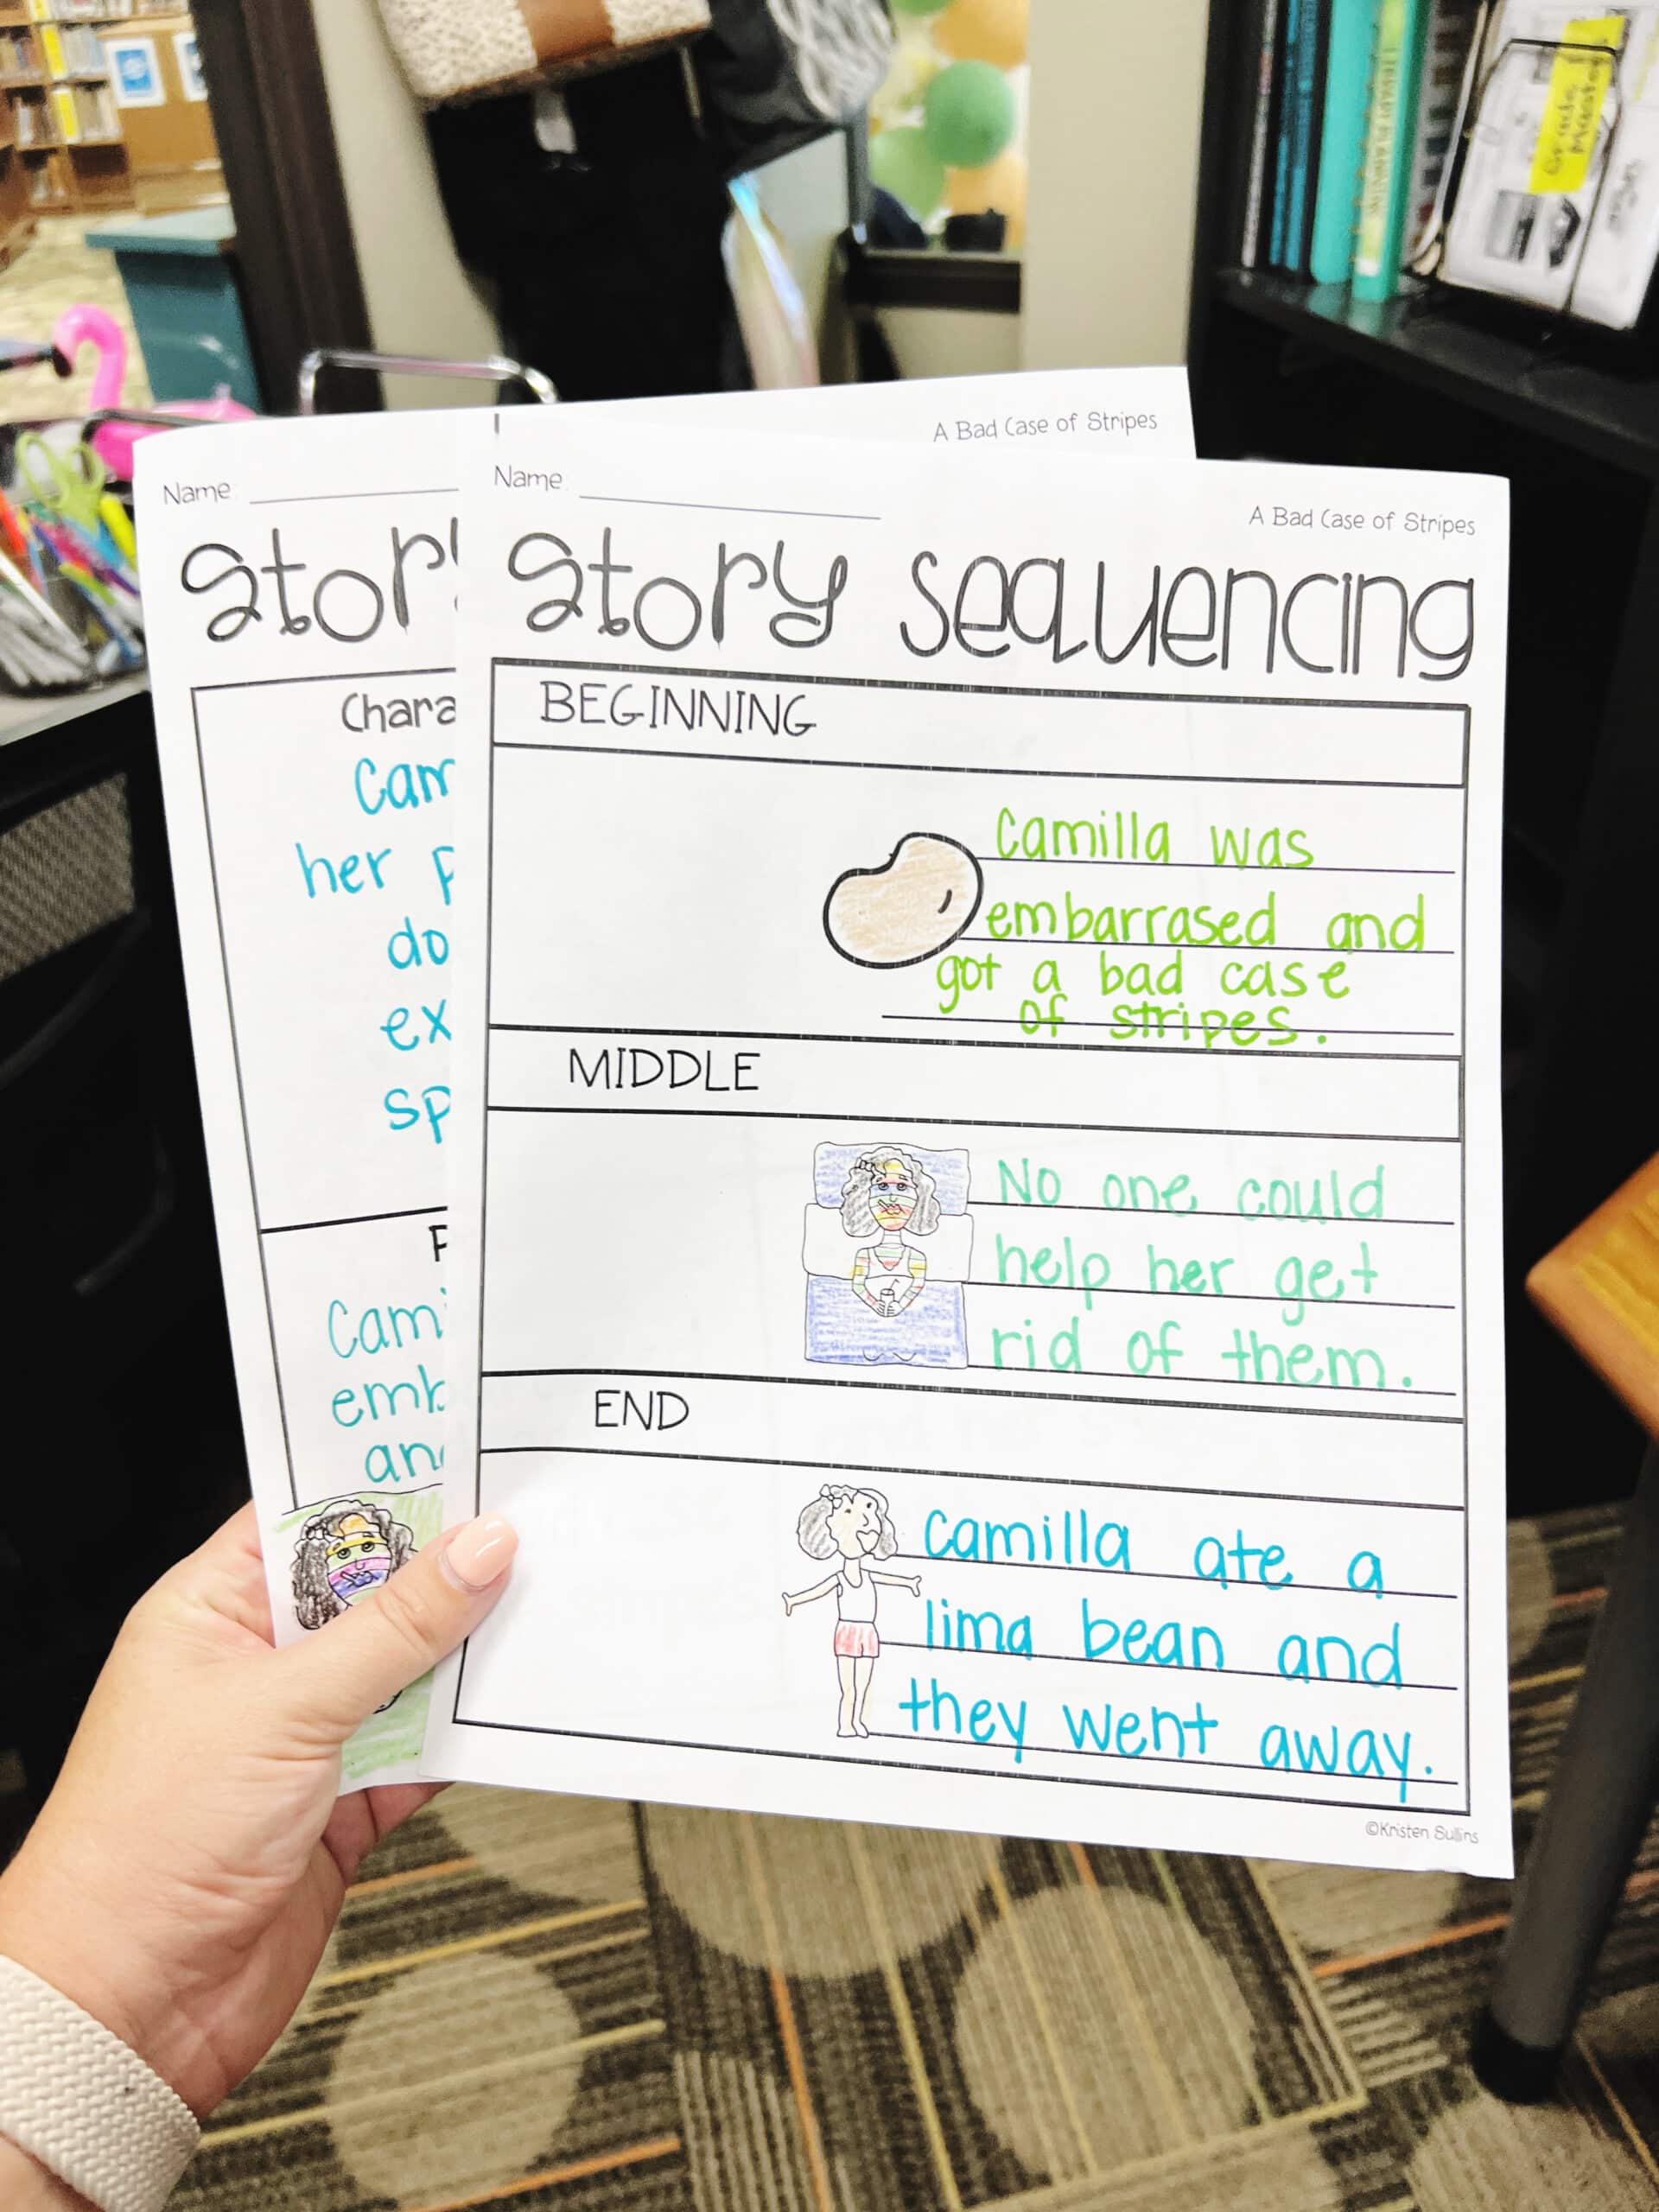 A Bad Case of Stripes
Name
Name
A Bad Case of Stripes
story sequencing
BEGINNING
Camilla was
embarrased and
got a bad case
of stripes.
MIDDLE
No one could
help her get
rid of them.
END
Camilla ate a
lima bean and
they went away.
©Kristen Sullins
stor
Chara
Cam
her p
do
ex
sp
Cami
emb
an